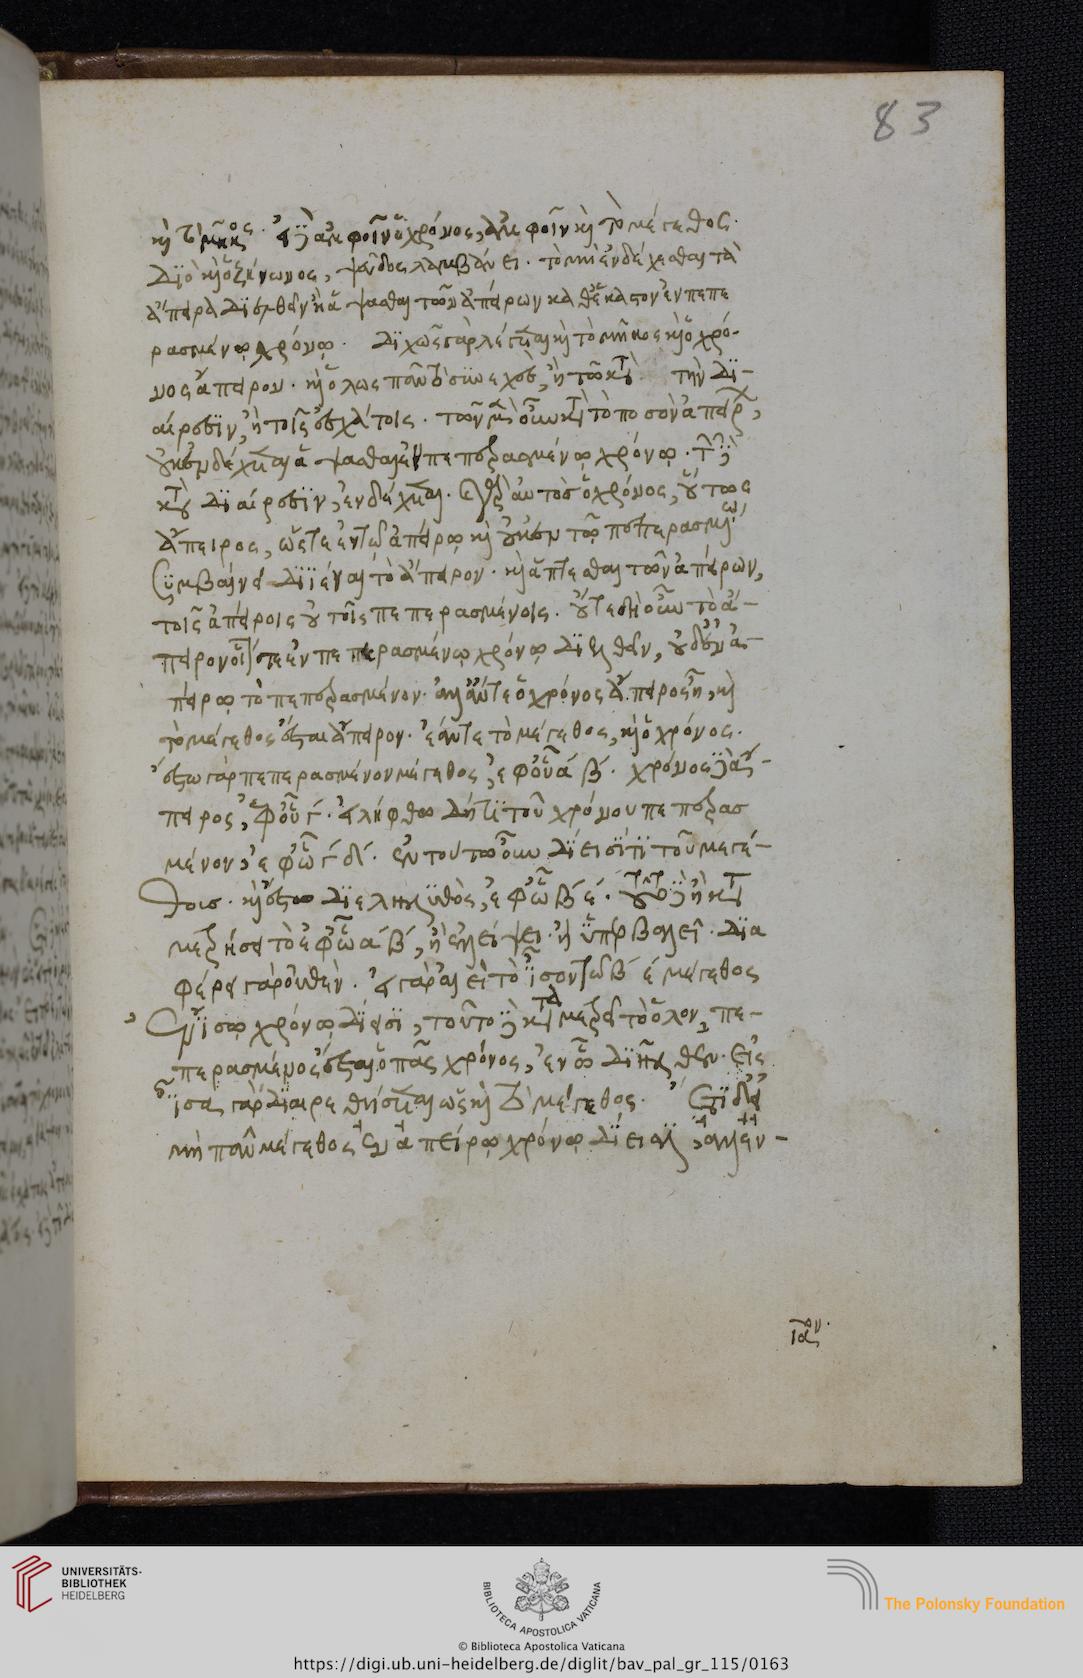 83
καὶ τὸ μῆκος. εἰ δὲ ἀμφοῖν ὁ χρόνος, ἀμφοῖν καὶ τὸ μέγεθος.
Διὸ καὶ ὁ Ζήνωνος, ψεῦδος λαμβάνει. τὸ μὴ ἐνδέχεσθαι τὰ
ἄπειρα διελθεῖν ἢ ἅψασθαι τῶν ἀπείρων καθέκαστον ἐν πεπε
ρασμένῳ χρόνῳ. διχῶς γὰρ λέγεται καὶ τὸ μῆκος καὶ ὁ χρό-
νος ἄπειρον. καὶ ὅλως πᾶν τὸ συνεχές, ἤτοι κατὰ τὴν δι-
αίρεσιν, ἢ τοῖς ἐσχάτοις. τῶν μὲν οὖν κατὰ τὸ ποσὸν ἀπείρ,
οὐκ ἐνδέχεται ἅψασθαι ἐν πεπερασμένῳ χρόνῳ. τῶν δὲ
κατὰ διαίρεσιν, ἐνδέχεται. καὶ γὰρ αὐτὸς ὁ χρόνος, οὕτως
ἄπειρος, ὥστε ἐν τῷ ἀπείρῳ καὶ οὐκ ἐν τῷ πεπερασμένῳ
συμβαίνει διϊέναι τὸ ἄπειρον. καὶ ἅπτεσθαι τῶν ἀπείρων,
τοῖς ἀπείροις οὐ τοῖς πεπερασμένοις. οὔτε δὴ οὖν τὸ ἄ-
πειρον οἷόν τε ἐν πεπερασμένῳ χρόνῳ διελθεῖν, οὐδ' ἐν ἀ-
πείρῳ τὸ πεπερασμένον. ἀλλ' ἐάν τε ὁ χρόνος ἄπειρος ᾖ, καὶ
τὸ μέγεθος ἔσται ἄπειρον. ἐάν τε τὸ μέγεθος, καὶ ὁ χρόνος.
ἔστω γὰρ πεπερασμένον μέγεθος, ἐφ' οὗ α β. χρόνος δὲ ἄ-
πειρος, ἐφ' οὗ γ. εἰλήφθω δή τι τοῦ χρόνου πεπερασ
μένον, ἐφ' ᾧ γ δ. ἐν τούτῳ οὖν δίεισί τι τοῦ μεγέ-
θους. καὶ ἔστω διεληλυθὸς, ἐφ' ᾧ β ε. τοῦτο δὲ ἢ κατα
μετρήσει τὸ ἐφ' ᾧ α β, ἢ ἐλλείψει. ἢ ὑπερβαλεῖ. δια
φέρει γὰρ οὐθέν. εἰ γὰρ ἀεὶ τὸ ἴσον τῷ β ε μέγεθος
ἐν ἴσῳ χρόνῳ δίεισι, τοῦτο δὲ καταμετρεῖ τὸ ὅλον, πε-
περασμένος ἔσται ὁ πᾶς χρόνος, ἐν ᾧ διῆλθεν. εἰς
ἴσα γὰρ διαιρεθήσεται ὡς καὶ τὸ μέγεθος. ἔτι δ' εἰ
μὴ πᾶν μέγεθος ἐν ἀπείρῳ χρόνῳ δίεισι, ἀλλ' ἐν-
ιαον
UNIVERSITÄTS-
BIBLIOTHEK
HEIDELBERG
BIBLIOTECA APOSTOLICA VATICANA
The Polonsky Foundation
© Biblioteca Apostolica Vaticana
https://digi.ub.uni-heidelberg.de/diglit/bav_pal_gr_115/0163